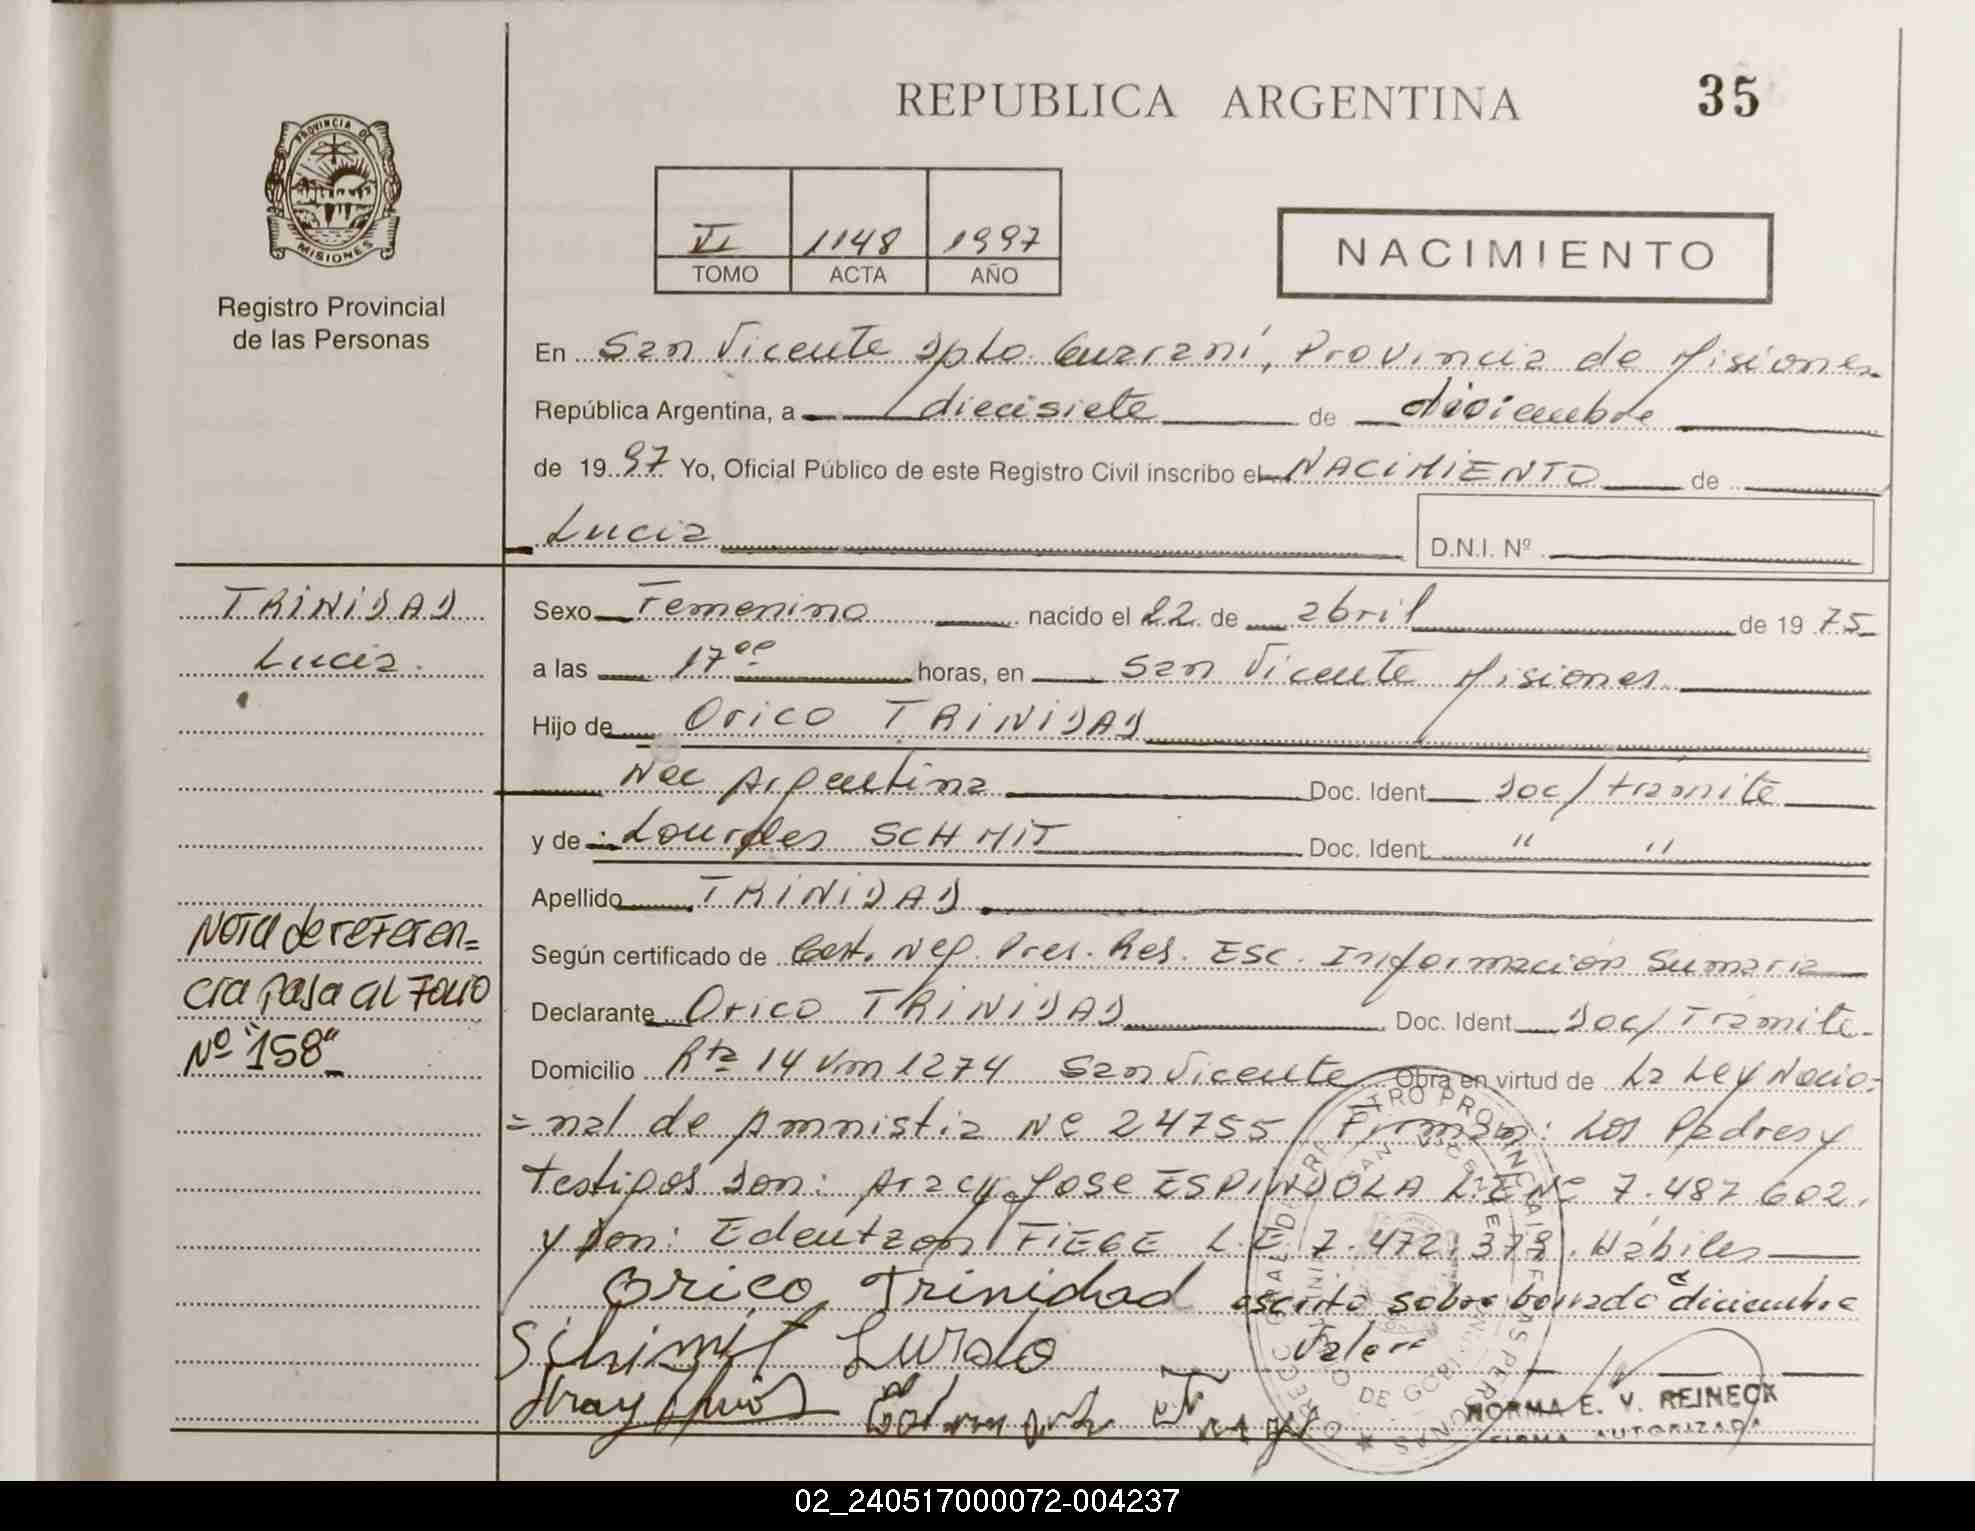 REPUBLICA ARGENTINA
35
PROVINCIA DE
MISIONES
Registro Provincial
de las Personas
VI 1148 1997
TOMO ACTA AÑO
NACIMIENTO
En San Vicente Dpto. Guaraní, Provincia de Misiones
República Argentina, a diecisiete de diciembre
de 1997 Yo, Oficial Público de este Registro Civil inscribo el NACIMIENTO de
Lucia D.N.I. Nº
TRINIDAD
Lucia.
Sexo Femenino nacido el 22 de abril de 1975
a las 17 horas, en San Vicente Misiones
Hijo de Orico TRINIDAD
Nac Argentina Doc. Ident. Doc/tramite
y de Lourdes SCHMIT Doc. Ident. " "
Apellido TRINIDAD
Nota de referen=
cia pasa al Folio
Nº "158"
Según certificado de Cert. Neg. Pres. Res. ESC. Información Sumaria
Declarante Orico TRINIDAD Doc. Ident. Doc/Tramite
Domicilio Rta 14 Km 1274 San Vicente Obra en virtud de La Ley Nacio=
=nal de Amnistia Nº 24755 Firman: Los Padres y
testigos Don: Aracy Jose ESPINDOLA L.E Nº 7.487 602.
y Don: Edeutzon FIEGE L.E 7.472.379. Hábiles
Orico Trinidad escrito sobre borrado diciembre
Schimit Lurdo Vale
NORMA E. V. REINECK
FIRMA AUTORIZADA
02_240517000072-004237